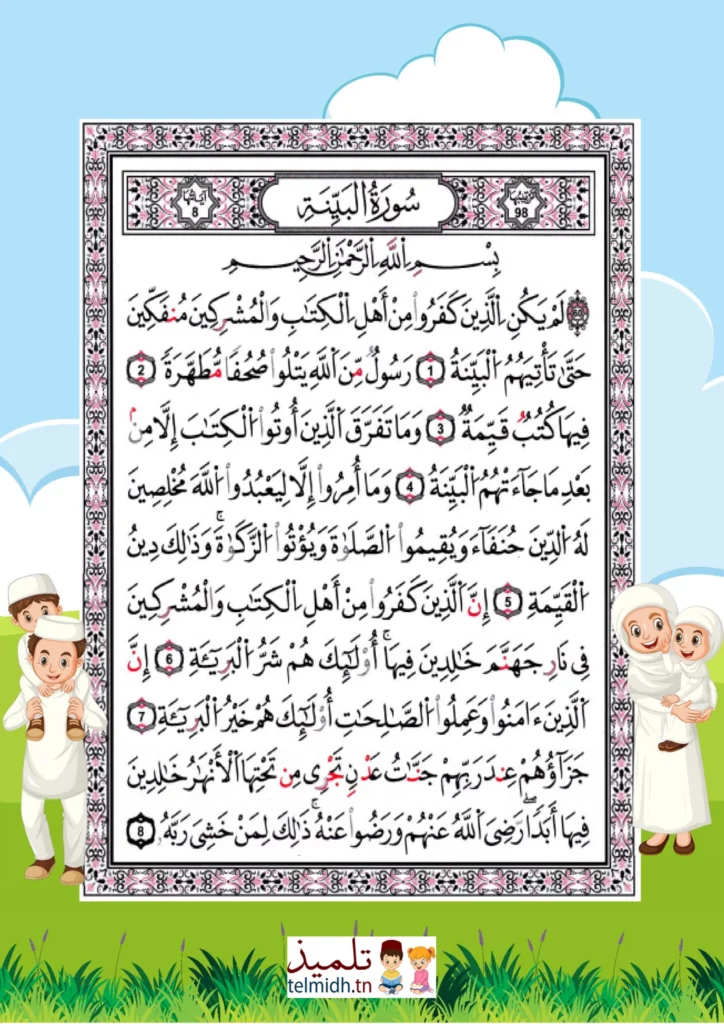 ترتيبها
98
سُورَةُ الْبَيِّنَةِ
آياتها
8
بِسْمِ اِللَّهِ اِلرَّحْمَٰنِ اِلرَّحِيمِ
60 لَمْ يَكُنِ اِلَّذِينَ كَفَرُواْ مِنْ أَهْلِ اِلْكِتَٰبِ وَالْمُشْرِكِينَ مُنفَكِّينَ
حَتَّىٰ تَأْتِيَهُمُ اُلْبَيِّنَةُ 1 رَسُولٌ مِّنَ اَللَّهِ يَتْلُواْ صُحُفًا مُّطَهَّرَةً 2
فِيهَا كُتُبٌ قَيِّمَةٌ 3 وَمَا تَفَرَّقَ اَلَّذِينَ أُوتُواْ اُلْكِتَٰبَ إِلَّا مِنۢ
بَعْدِ مَا جَآءَتْهُمُ اُلْبَيِّنَةُ 4 وَمَا أُمِرُواْ إِلَّا لِيَعْبُدُواْ اُللَّهَ مُخْلِصِينَ
لَهُ اُلدِّينَ حُنَفَآءَ وَيُقِيمُواْ اُلصَّلَوٰةَ وَيُؤْتُواْ اُلزَّكَوٰةَ ۚ وَذَٰلِكَ دِينُ
اُلْقَيِّمَةِ 5 إِنَّ اَلَّذِينَ كَفَرُواْ مِنْ أَهْلِ اِلْكِتَٰبِ وَالْمُشْرِكِينَ
فِى نَارِ جَهَنَّمَ خَٰلِدِينَ فِيهَا ۚ أُوْلَٰٓئِكَ هُمْ شَرُّ اُلْبَرِيٓـَٔةِ 6 إِنَّ
اَلَّذِينَ ءَامَنُواْ وَعَمِلُواْ اُلصَّٰلِحَٰتِ أُوْلَٰٓئِكَ هُمْ خَيْرُ اُلْبَرِيٓـَٔةِ 7
جَزَآؤُهُمْ عِندَ رَبِّهِمْ جَنَّٰتُ عَدْنٍ تَجْرِى مِن تَحْتِهَا اَلْأَنْهَٰرُ خَٰلِدِينَ
فِيهَا أَبَدًا ۖ رَّضِىَ اَللَّهُ عَنْهُمْ وَرَضُواْ عَنْهُ ۚ ذَٰلِكَ لِمَنْ خَشِىَ رَبَّهُ 8
تلميذ
telmidh.tn